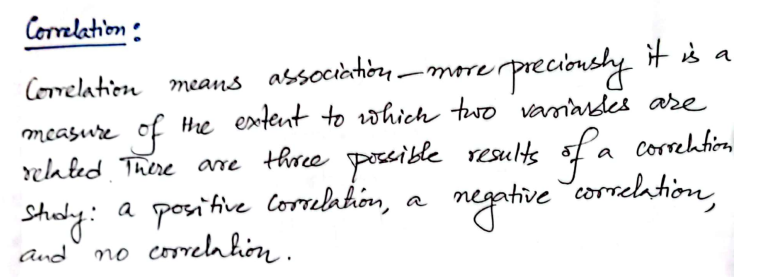 Correlation:
Correlation means association – more preciously it is a
measure of the extent to which two variables are
related. There are three possible results of a correlation
study: a positive correlation, a negative correlation,
and no correlation.